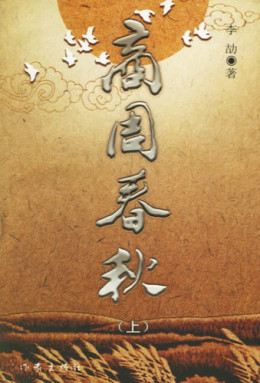 李劼◉著
商周春秋
（上）
作家出版社